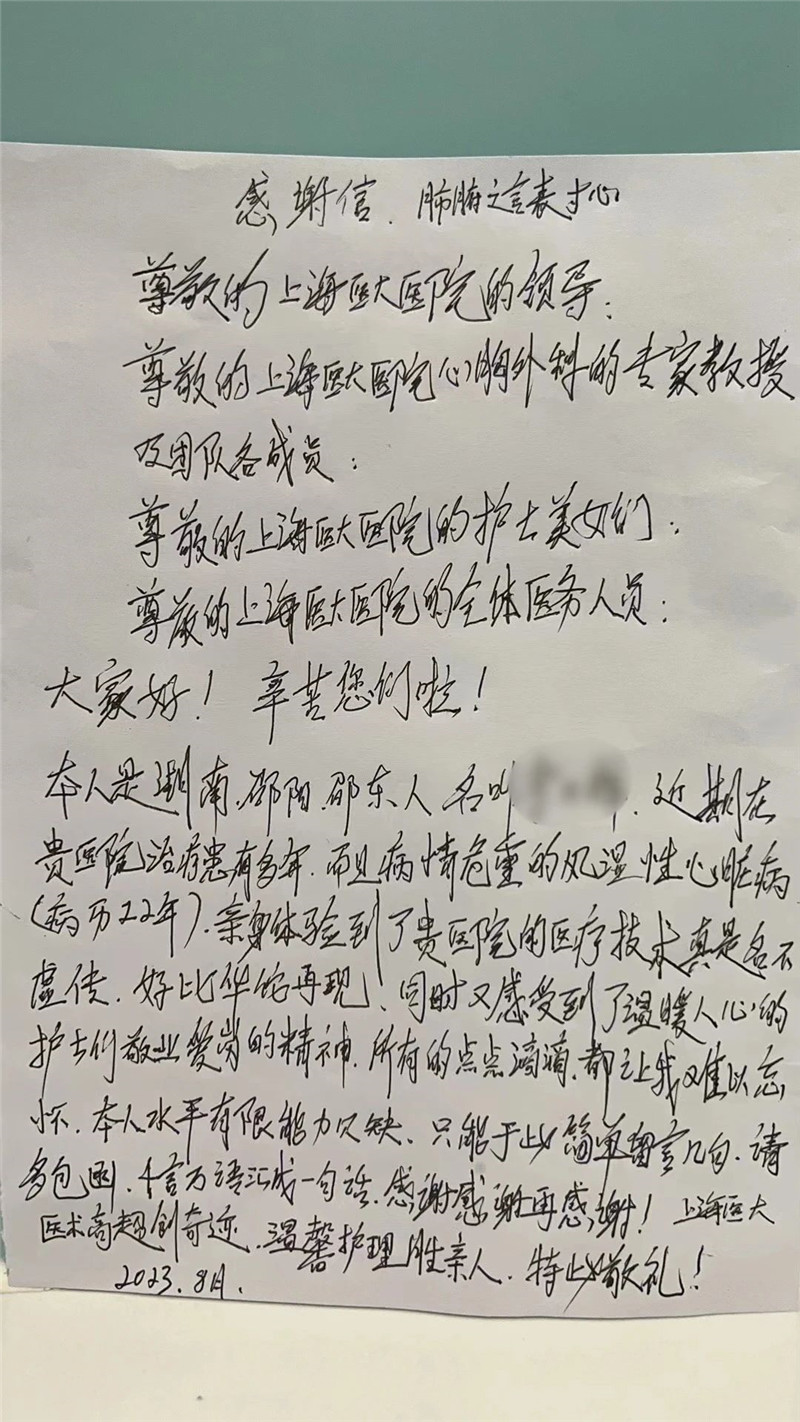 感谢信、肺腑之言表寸心
尊敬的上海医大医院的领导：
尊敬的上海医大医院心胸外科的专家教授
及团队各成员：
尊敬的上海医大医院的护士美女们：
尊敬的上海医大医院的全体医务人员：
大家好！辛苦您们啦！
本人是湖南、邵阳、邵东人名叫、近期在
贵医院治疗患有多年、而且病情危重的风湿性心脏病
（病历22年）、亲身体验到了贵医院的医疗技术真是名不
虚传、好比华佗再现、同时又感受到了温暖人心的
护士们敬业爱岗的精神、所有的点点滴滴、都让我难以忘
怀、本人水平有限能力欠缺、只能于此简单留言几句、请
多包函、千言万语汇成一句话、感谢感谢再感谢！上海医大
医术高超创奇迹、温馨护理胜亲人、特此敬礼！
2023.8月.